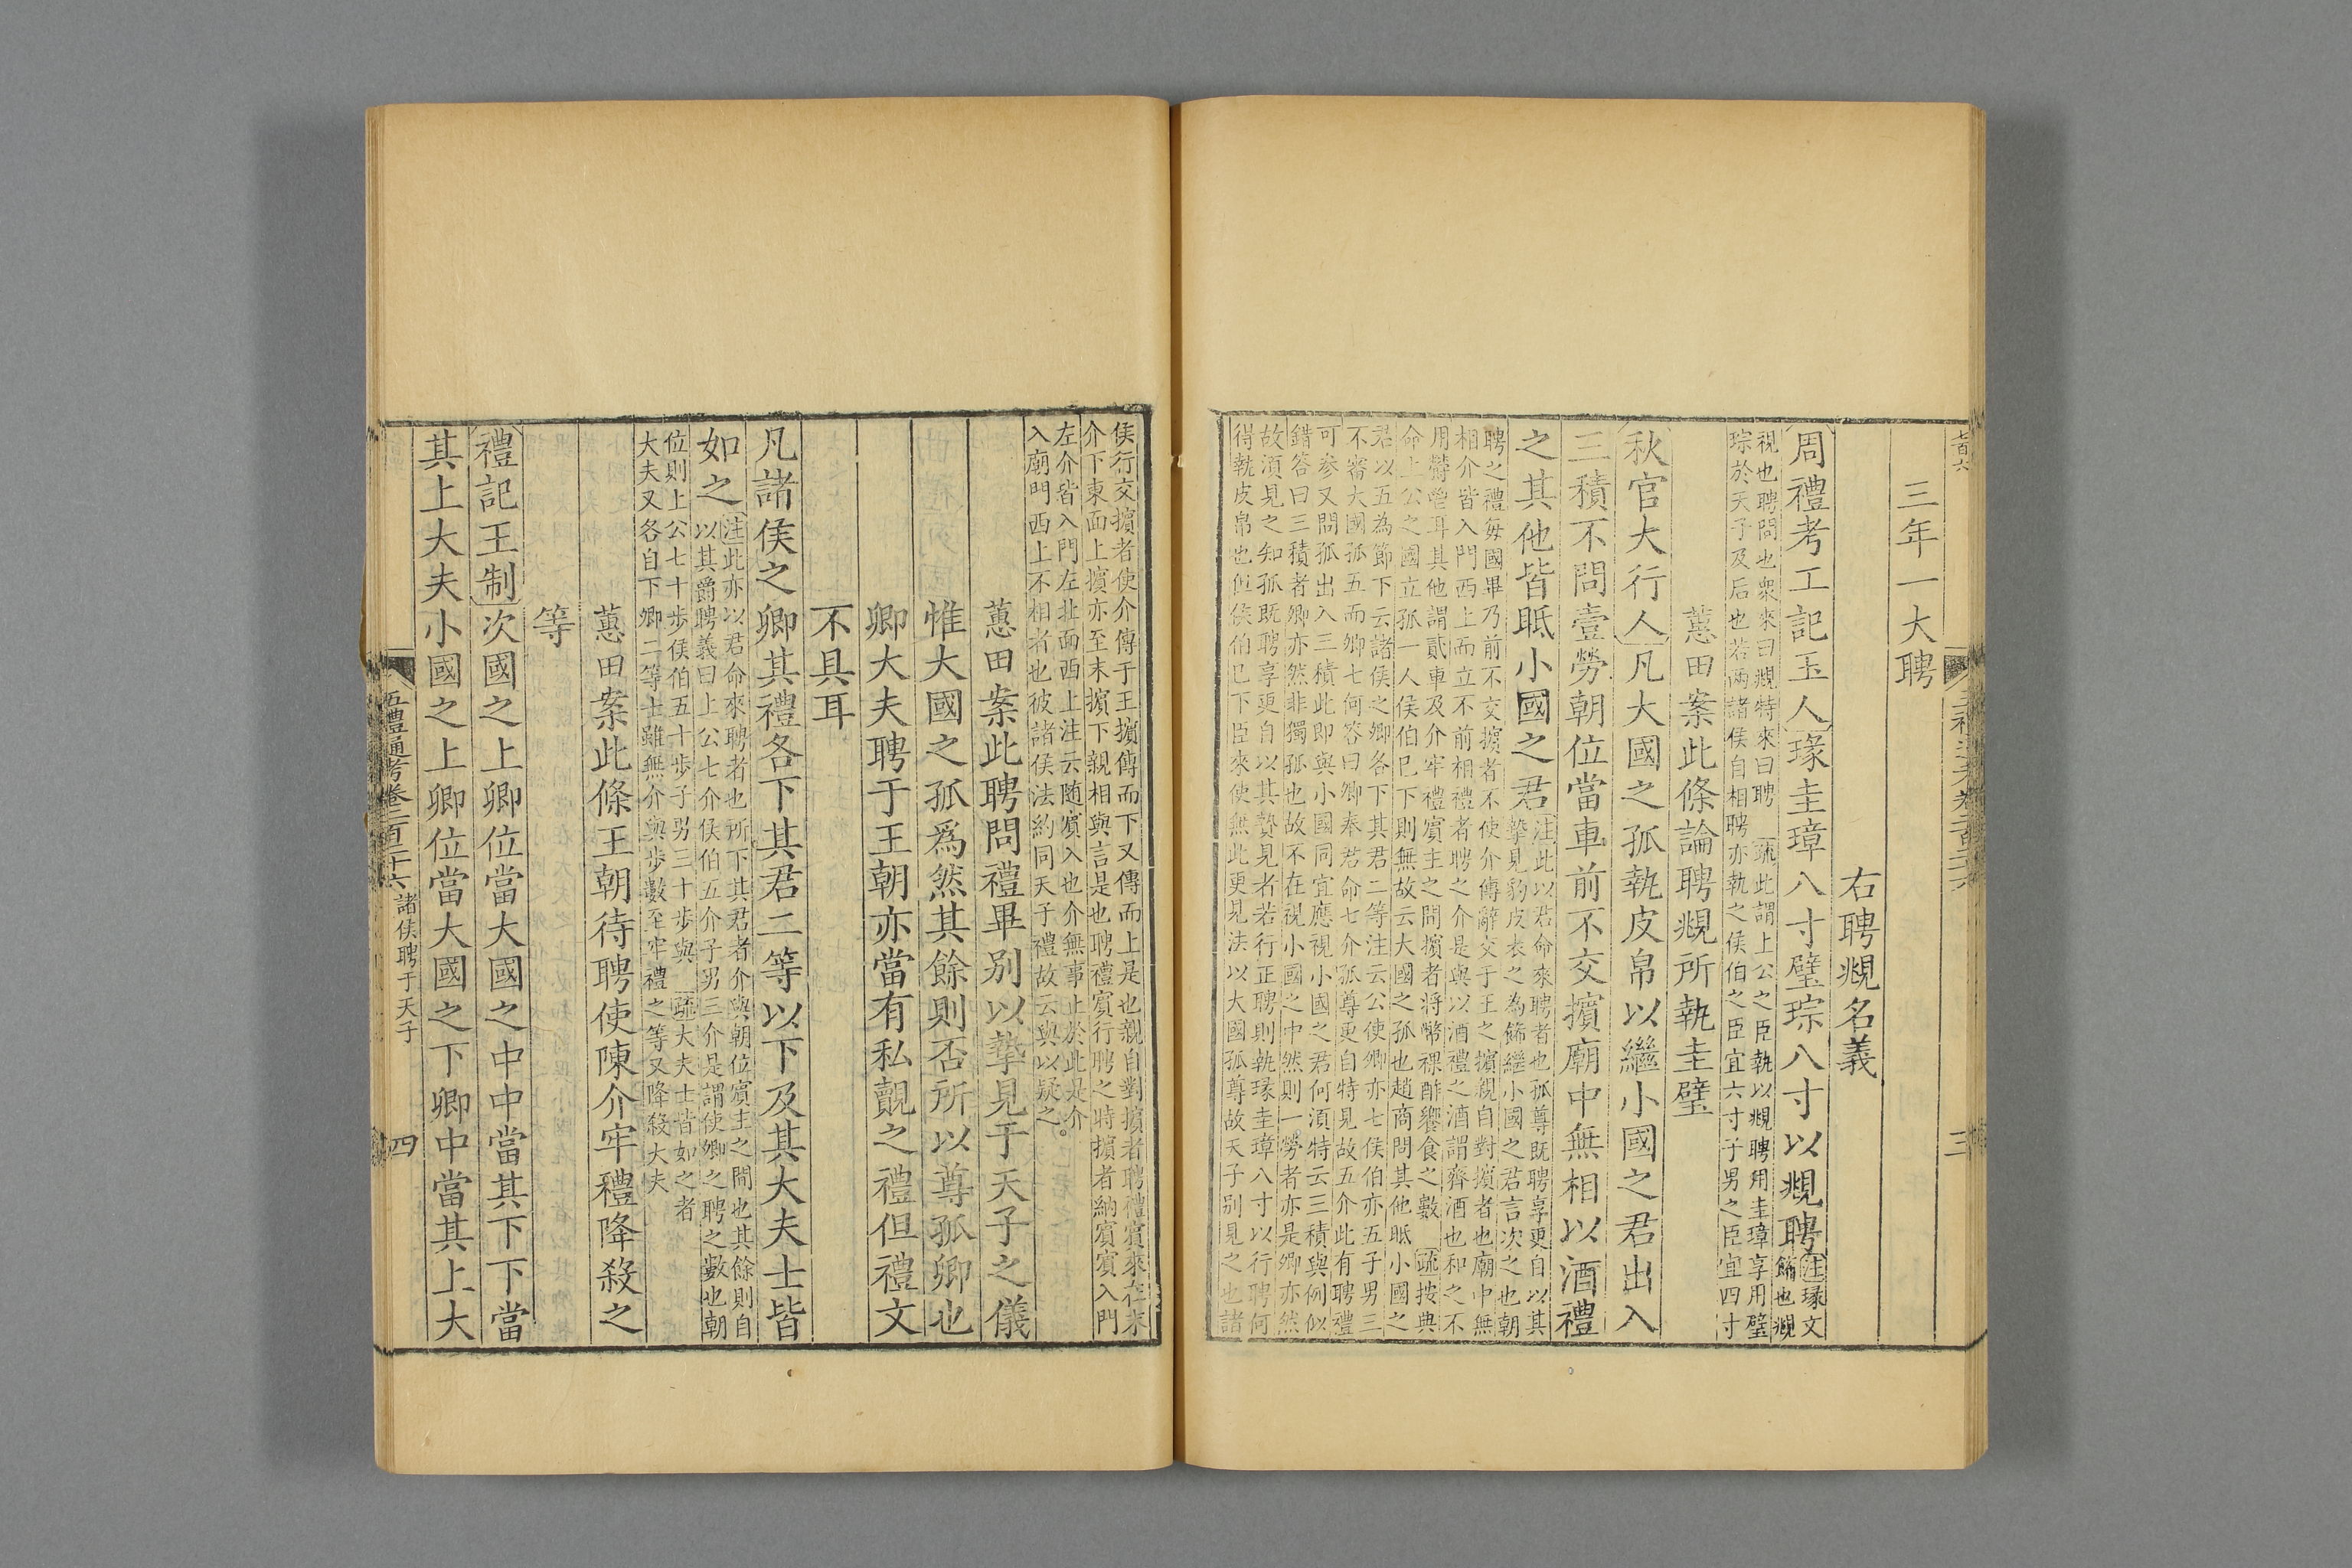 三年一大聘
右聘覜名義
周禮考工記玉人瑑圭璋八寸璧琮八寸以覜聘注瑑文飾也覜
視也聘問也衆來曰覜特來曰聘 疏此謂上公之臣執以覜聘用圭璋享用璧
琮於天子及后也若兩諸侯自相聘亦執之侯伯之臣宜六寸子男之臣宜四寸
蕙田案此條論聘覜所執圭璧
秋官大行人凡大國之孤執皮帛以繼小國之君出入
三積不問壹勞朝位當車前不交擯廟中無相以酒禮
之其他皆眡小國之君注此以君命來聘者也孤尊既聘享更自以其
摯見豹皮表之為飾繼小國之君言次之也朝
聘之禮每國畢乃前不交擯者不使介傳辭交于王之擯親自對擯者也廟中無
相介皆入門西上而立不前相禮者聘之介是與以酒禮之酒謂齊酒也和之不
用鬱鬯耳其他謂貳車及介牢禮賓主之間擯者將幣裸酢饗食之數 疏按典
命上公之國立孤一人侯伯已下則無故云大國之孤也趙商問其他眡小國之
君以五為節下云諸侯之卿各下其君二等注云公使卿亦七侯伯亦五子男三
不審大國孤五而卿七何答曰卿奉君命七介孤尊更自特見故五介此有聘禮
可參又問孤出入三積此即與小國同宜應視小國之君何須特云三積與例似
錯答曰三積者卿亦然非獨孤也故不在視小國之中然則一勞者亦是卿亦然
故須見之知孤既聘享更自以其贄見者若行正聘則執瑑圭璋八寸以行聘何
得執皮帛也但侯伯已下臣來使無此更見法以大國孤尊故天子別見之也諸
侯行交擯者使介傳于王擯傳而下又傳而上是也親自對擯者聘禮賓來在末
介下東面上擯亦至末擯下親相與言是也聘禮賓行聘之時擯者納賓賓入門
左介皆入門左北面西上注云隨賓入也介無事止於此是介
入廟門西上不相者也彼諸侯法約同天子禮故云與以疑之。
蕙田案此聘問禮畢別以摯見于天子之儀
惟大國之孤爲然其餘則否所以尊孤卿也
卿大夫聘于王朝亦當有私覿之禮但禮文
不具耳
凡諸侯之卿其禮各下其君二等以下及其大夫士皆
如之注此亦以君命來聘者也所下其君者介與朝位賓主之間也其餘則自
以其爵聘義曰上公七介侯伯五介子男三介是謂使卿之聘之數也朝
位則上公七十步侯伯五十步子男三十步與 疏大夫士皆如之者
大夫又各自下卿二等士雖無介與步數至牢禮之等又降殺大夫
蕙田案此條王朝待聘使陳介牢禮降殺之
等
禮記王制次國之上卿位當大國之中中當其下下當
其上大夫小國之上卿位當大國之下卿中當其上大
五禮通考卷二百二十六 諸侯聘于天子 四